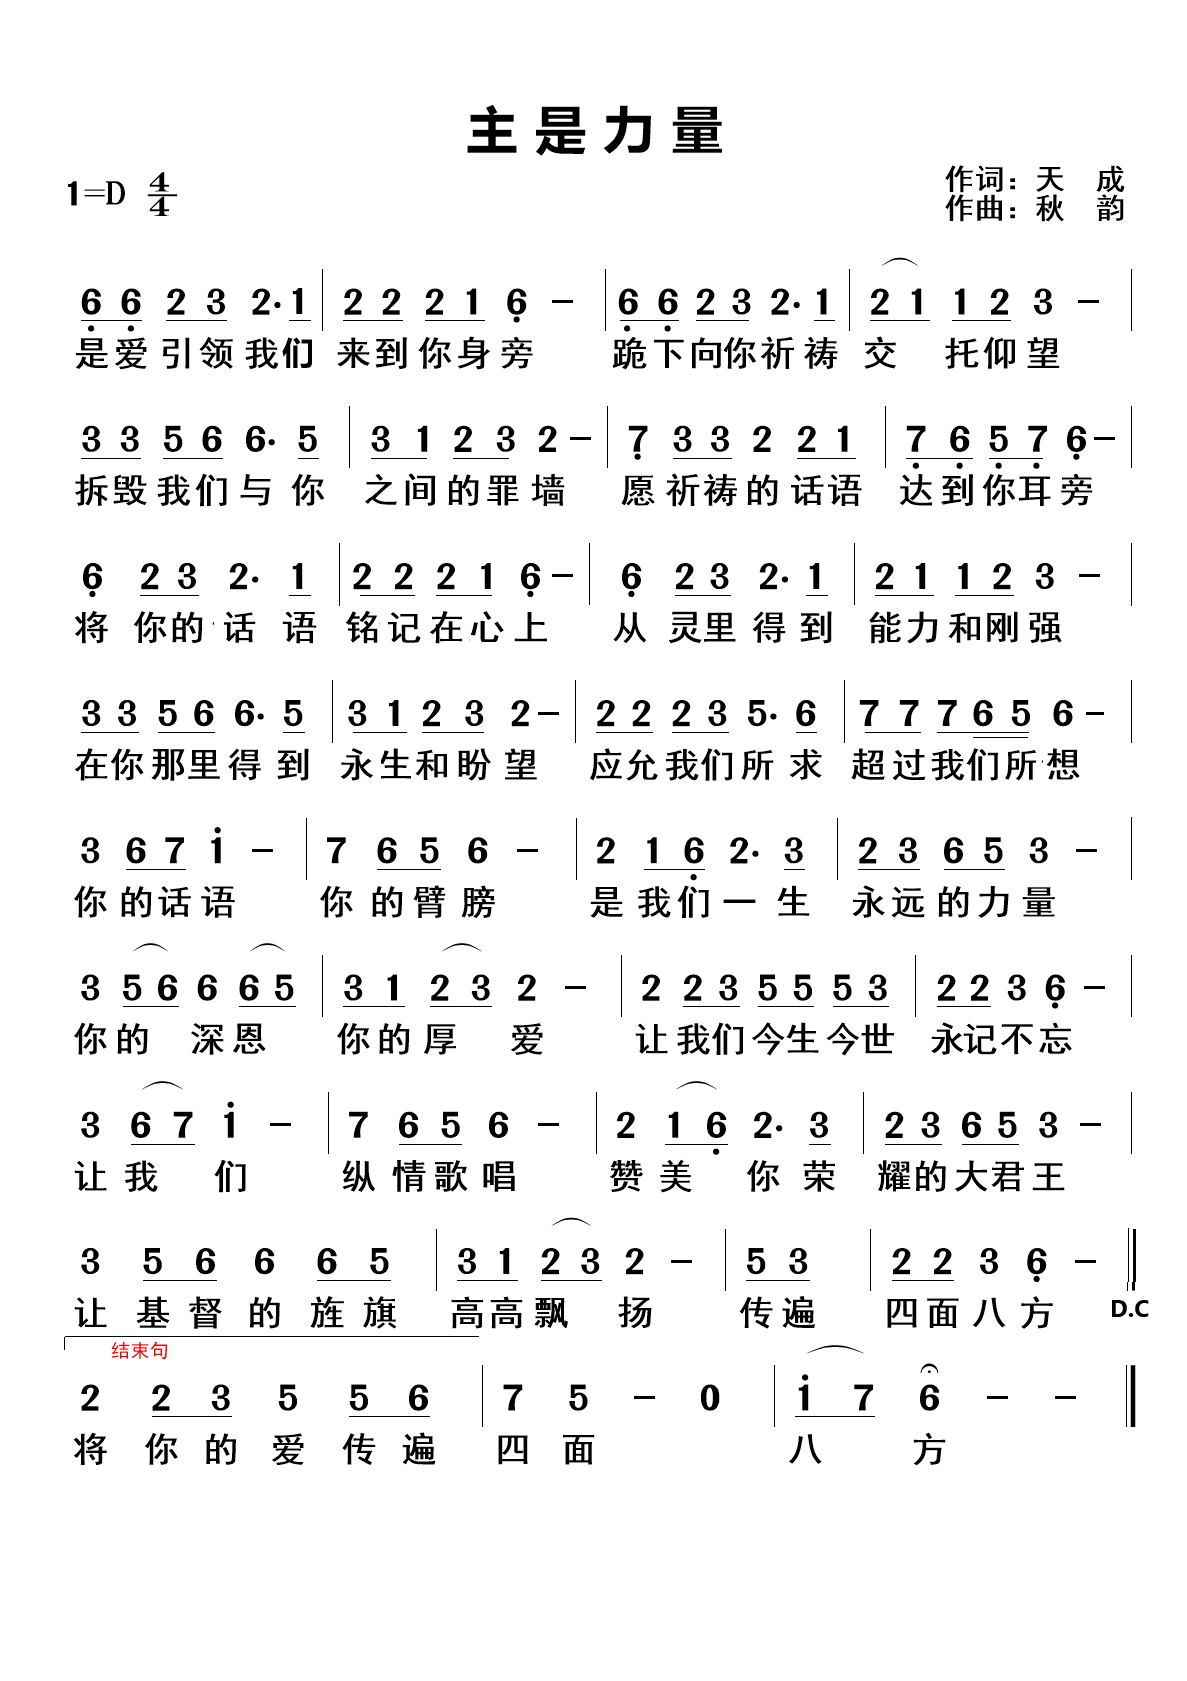 主是力量
1=D 4/4
作词：天 成
作曲：秋 韵
6 6 2 3 2· 1 | 2 2 2 1 6 － | 6 6 2 3 2· 1 | 2 1 1 2 3 － |
是爱引领我们 来到你身旁 跪下向你祈祷 交 托仰望
3 3 5 6 6· 5 | 3 1 2 3 2 － | 7 3 3 2 2 1 | 7 6 5 7 6 － |
拆毁我们与你 之间的罪墙 愿祈祷的话语 达到你耳旁
6 2 3 2· 1 | 2 2 2 1 6 － | 6 2 3 2· 1 | 2 1 1 2 3 － |
将你的话语 铭记在心上 从灵里得到 能力和刚强
3 3 5 6 6· 5 | 3 1 2 3 2 － | 2 2 2 3 5· 6 | 7 7 7 6 5 6 － |
在你那里得到 永生和盼望 应允我们所求 超过我们所想
3 6 7 1 － | 7 6 5 6 － | 2 1 6 2· 3 | 2 3 6 5 3 － |
你的话语 你的臂膀 是我们一生 永远的力量
3 5 6 6 6 5 | 3 1 2 3 2 － | 2 2 3 5 5 5 3 | 2 2 3 6 － |
你的 深恩 你的厚 爱 让我们今生今世 永记不忘
3 6 7 1 － | 7 6 5 6 － | 2 1 6 2· 3 | 2 3 6 5 3 － |
让我 们 纵情歌唱 赞美 你荣 耀的大君王
3 5 6 6 6 5 | 3 1 2 3 2 － | 5 3 | 2 2 3 6 － ‖
让基督的旌旗 高高飘 扬 传遍 四面八方 D.C
结束句
2 2 3 5 5 6 | 7 5 － 0 | 1 7 6 － － ‖
将你的爱传遍 四面 八 方